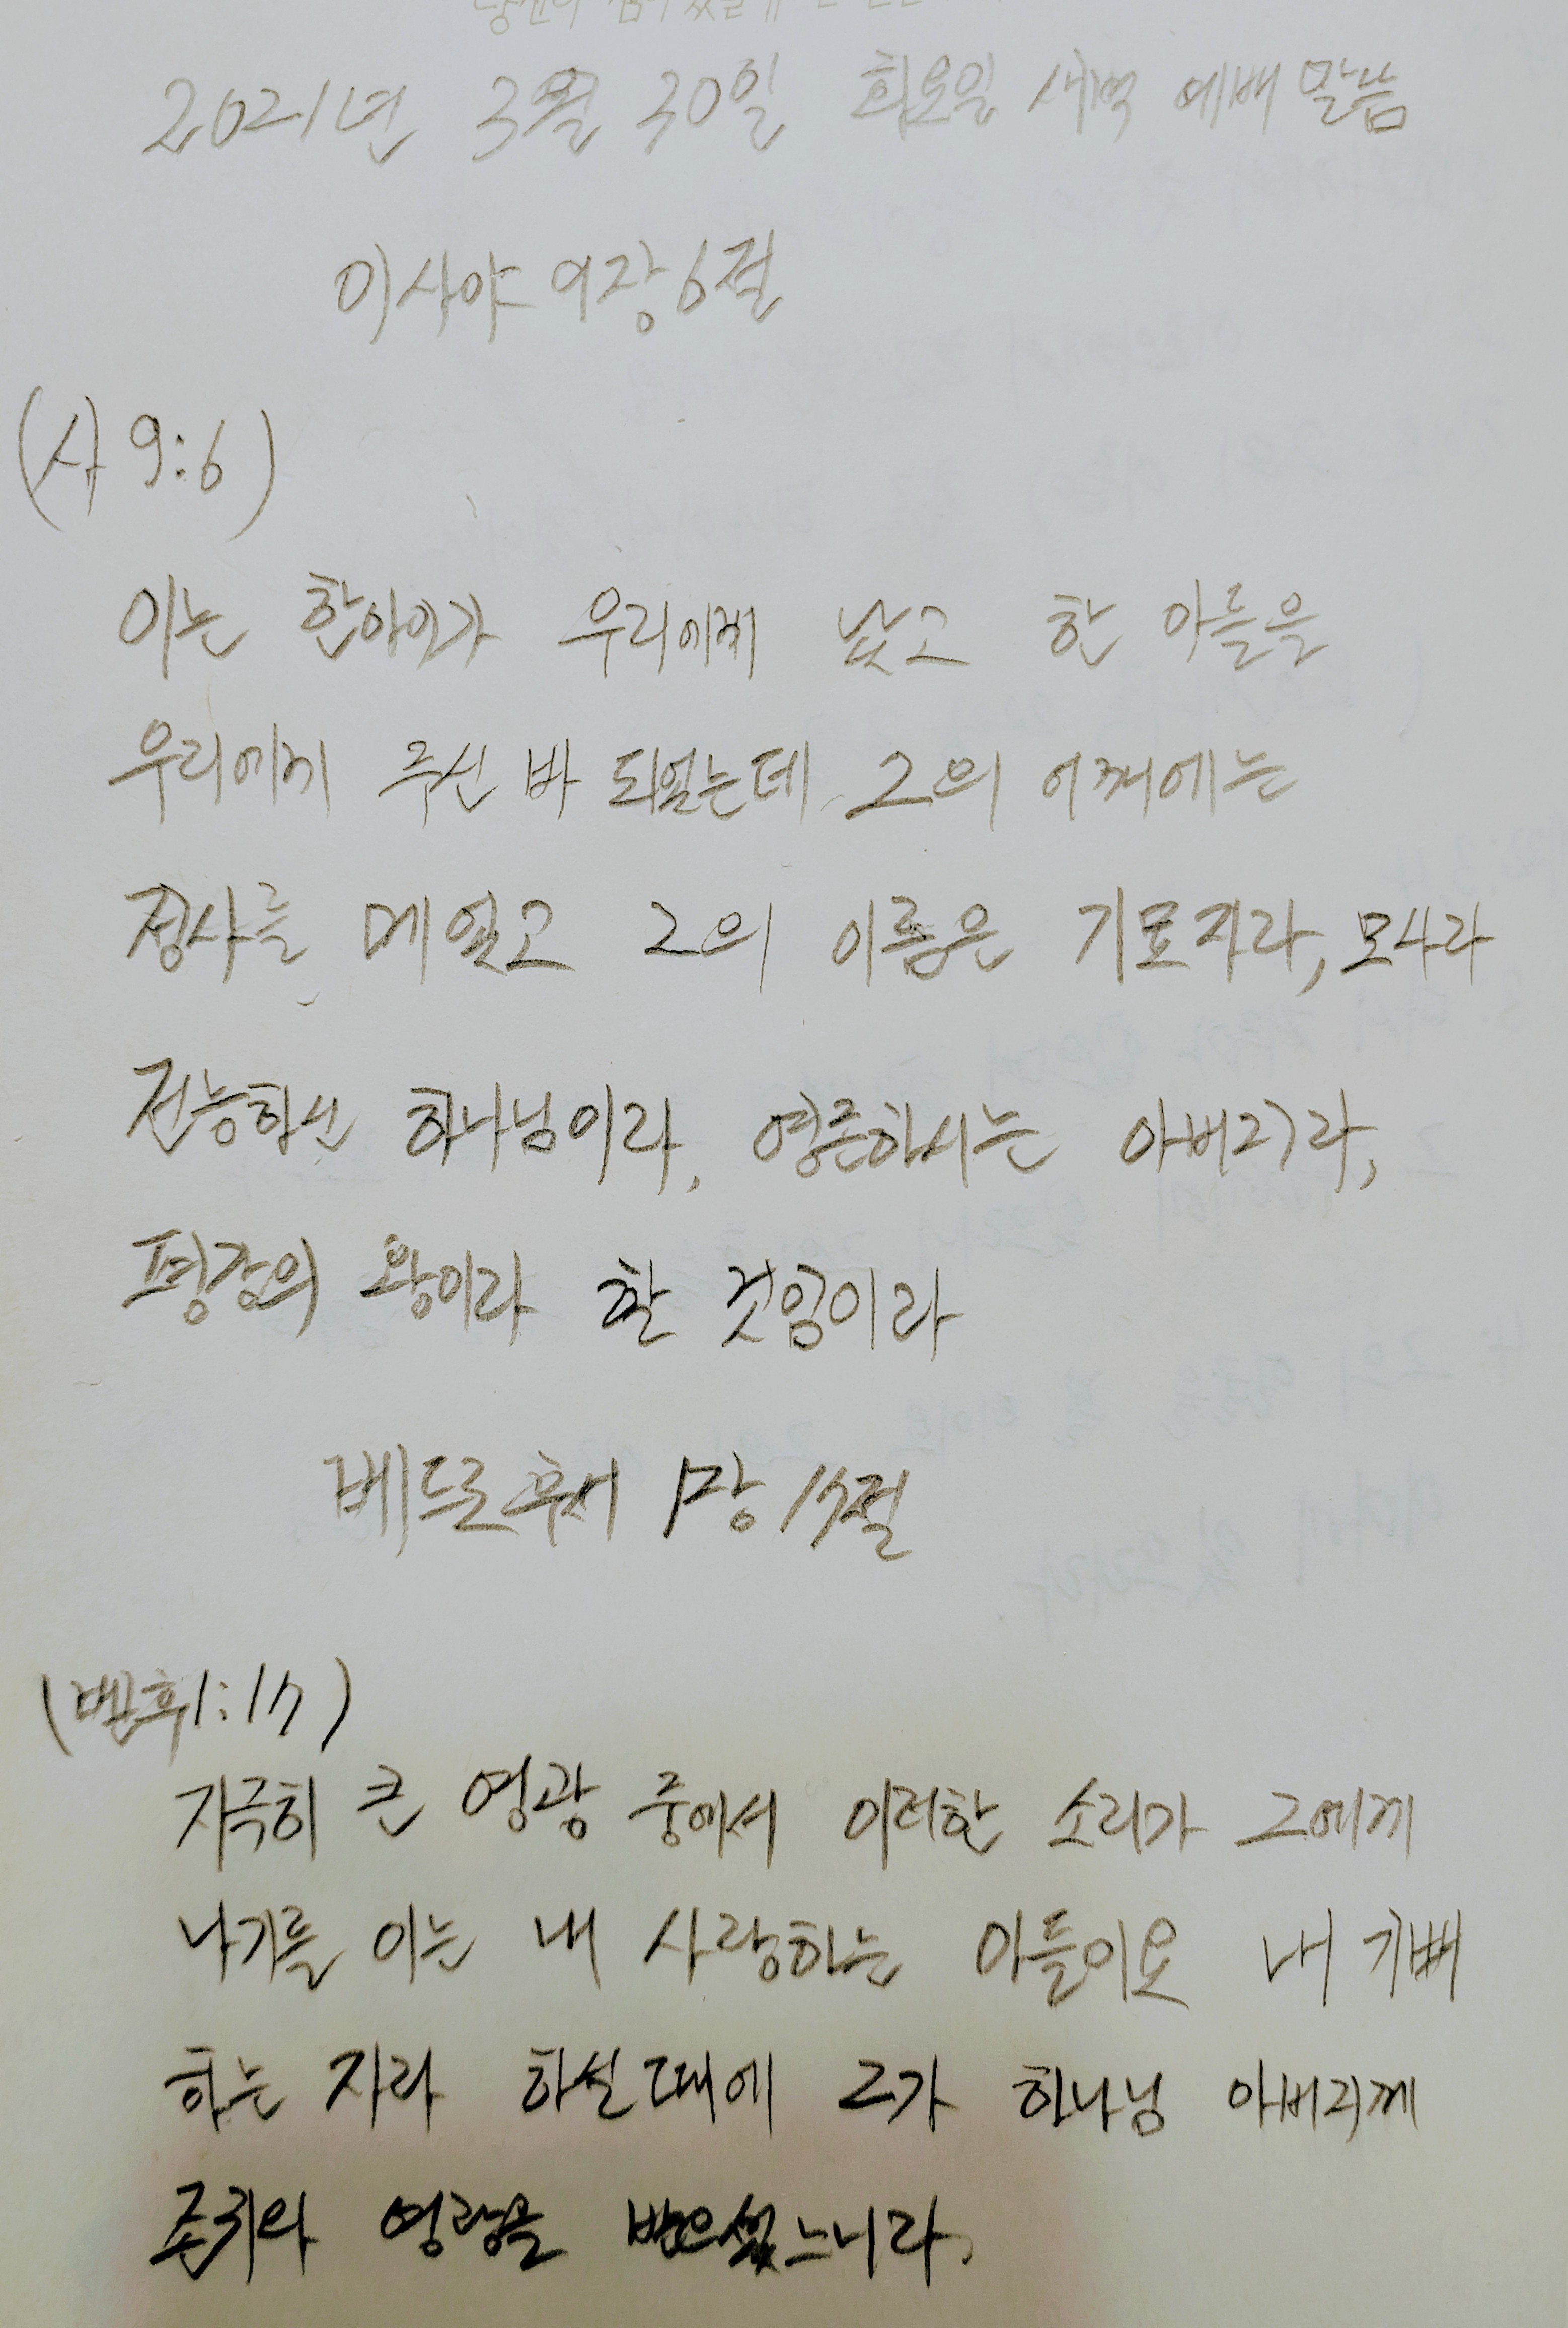 2021년 3월 30일 화요일 새벽 예배 말씀
이사야 9장 6절
(사 9:6)
이는 한아이가 우리에게 났고 한 아들을
우리에게 주신 바 되었는데 그의 어깨에는
정사를 메었고 그의 이름은 기묘자라, 모사라
전능하신 하나님이라, 영존하시는 아버지라,
평강의 왕이라 할 것임이라
베드로후서 1장 17절
(벧후1:17)
지극히 큰 영광 중에서 이러한 소리가 그에게
나기를 이는 내 사랑하는 아들이요 내 기뻐
하는 자라 하실 때에 그가 하나님 아버지께
존귀와 영광을 받으셨느니라.